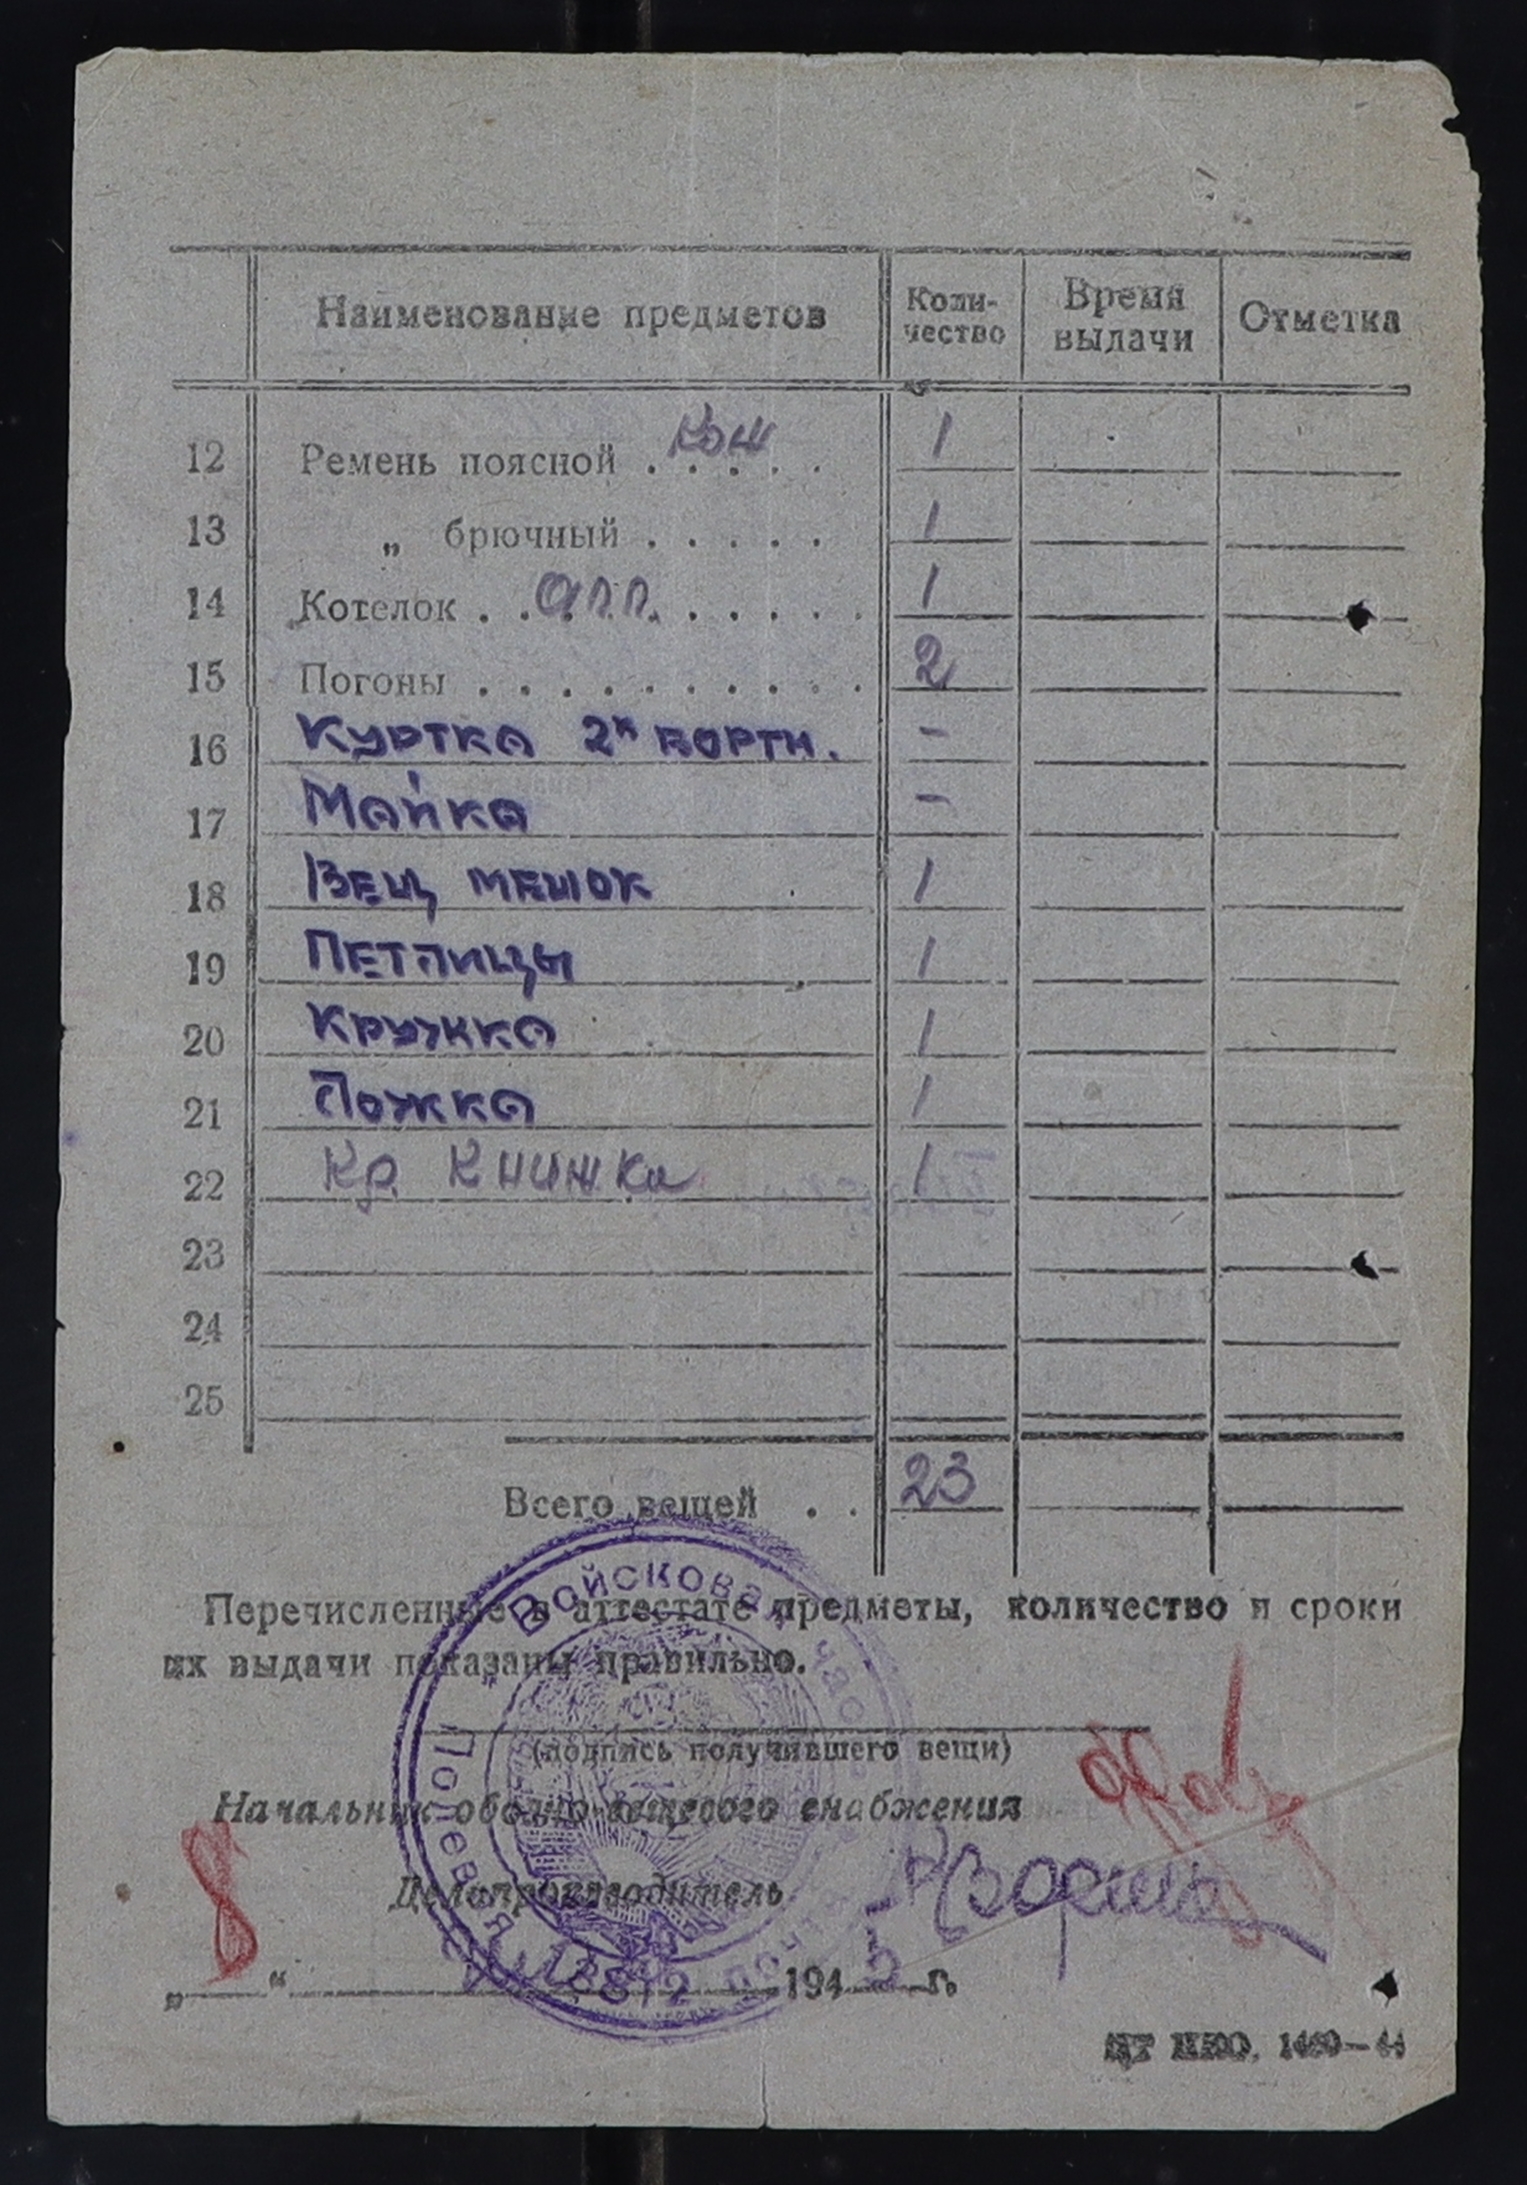 Наименование предметов
Коли-
чество
Время
выдачи
Отметка
12 Ремень поясной . . . . . кож 1
13 „ брючный . . . . . 1
14 Котелок . . . . . . . . . 1
15 Погоны . . . . . . . . . . 2
16 Куртка 2х бортн. -
17 Майка -
18 Вещ мешок 1
19 Петлицы 1
20 Кружка 1
21 Ложка 1
22 Кр. Книжка 1
23
24
25
Всего вещей . . 23
Перечисленные в аттестате предметы, количество и сроки
их выдачи показаны правильно.
(подпись получившего вещи)
Начальник обозно-вещевого снабжения
Делопроизводитель
„ “ 194 5 г.
Войсковая часть
Полевая почта
8
ЦТ НКО.